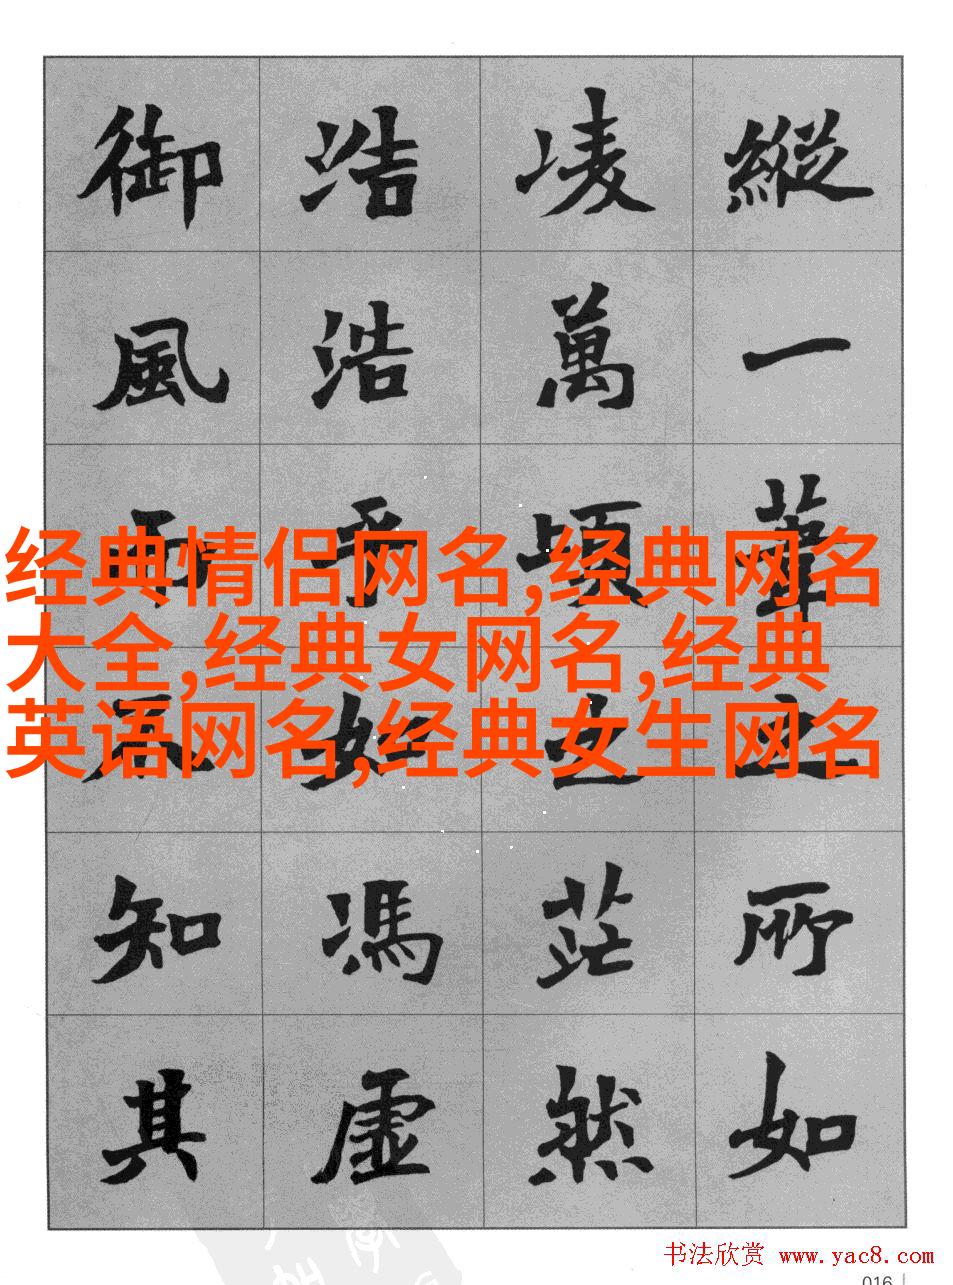 縱一葦之所如
凌萬頃之茫然
浩浩乎如馮虛
御風而不知其
经典情侣网名,经典网名
大全,经典女网名,经典
英语网名,经典女生网名
书法欣赏 www.yac8.com
016